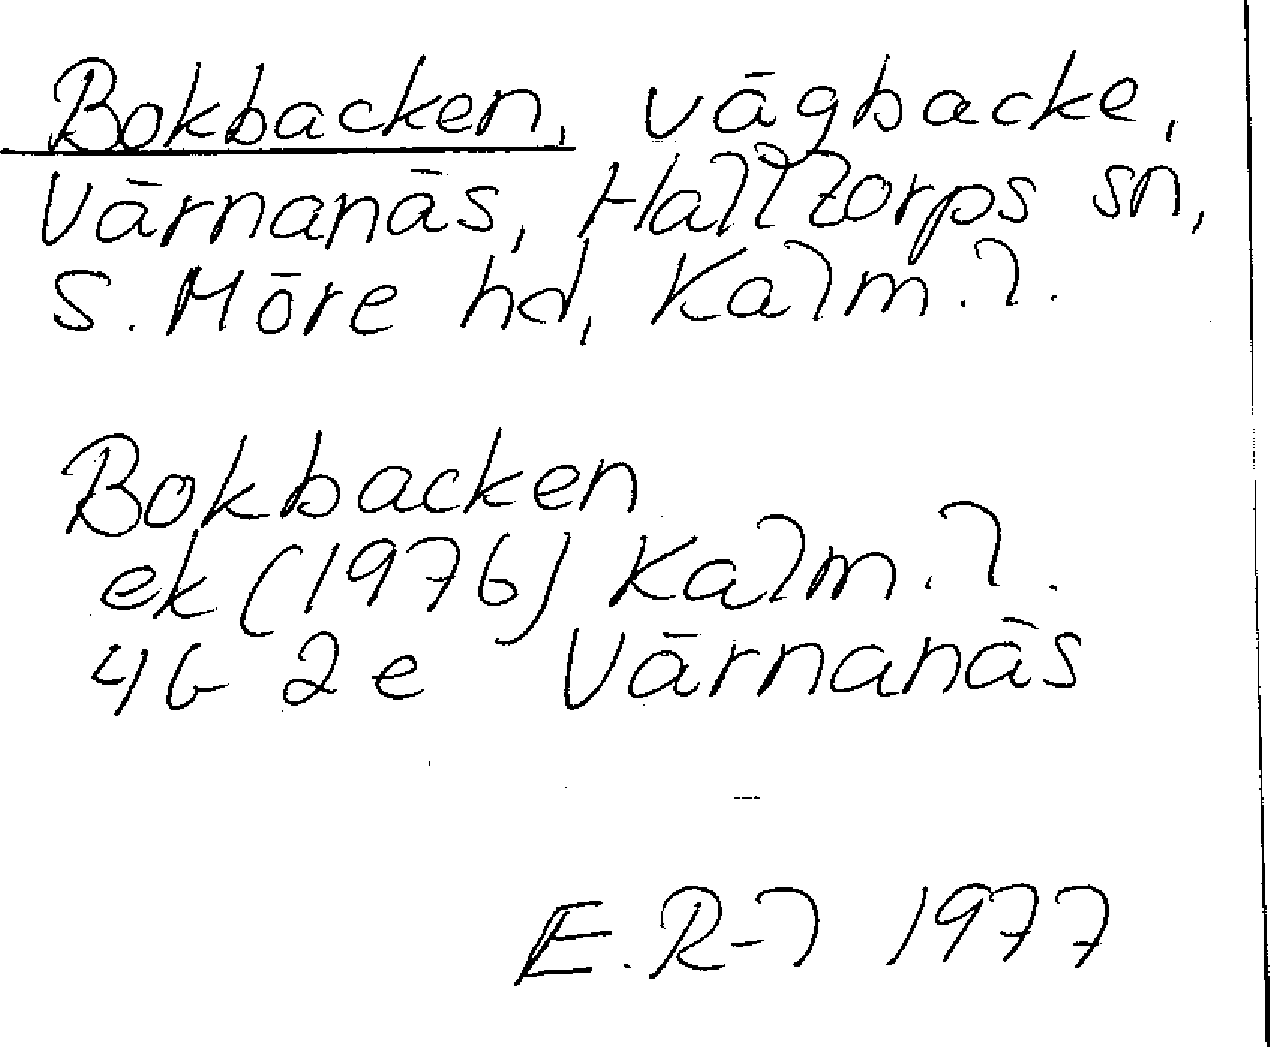 Bokbacken, vägbacke,
Värnanäs, Halltorps sn,
S. Möre hd, Kalm. l.
Bokbacken
ek (1976) Kalm. l.
4G 2e Värnanäs
E. R-l 1977